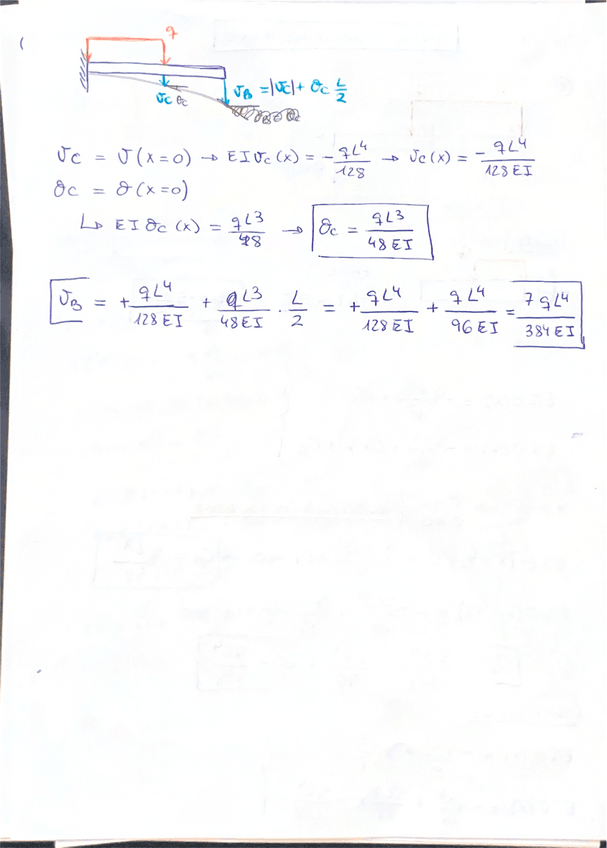 (
q
v_C θ_C
v_B = |v_C| + θ_C L/2
v_C = v(x=0) → EI v_C(x) = - qL⁴/128 → v_C(x) = - qL⁴/128EI
θ_C = θ(x=0)
↳ EI θ_C(x) = qL³/48 → θ_C = qL³/48EI
v_B = + qL⁴/128EI + qL³/48EI · L/2 = + qL⁴/128EI + qL⁴/96EI = 7qL⁴/384EI